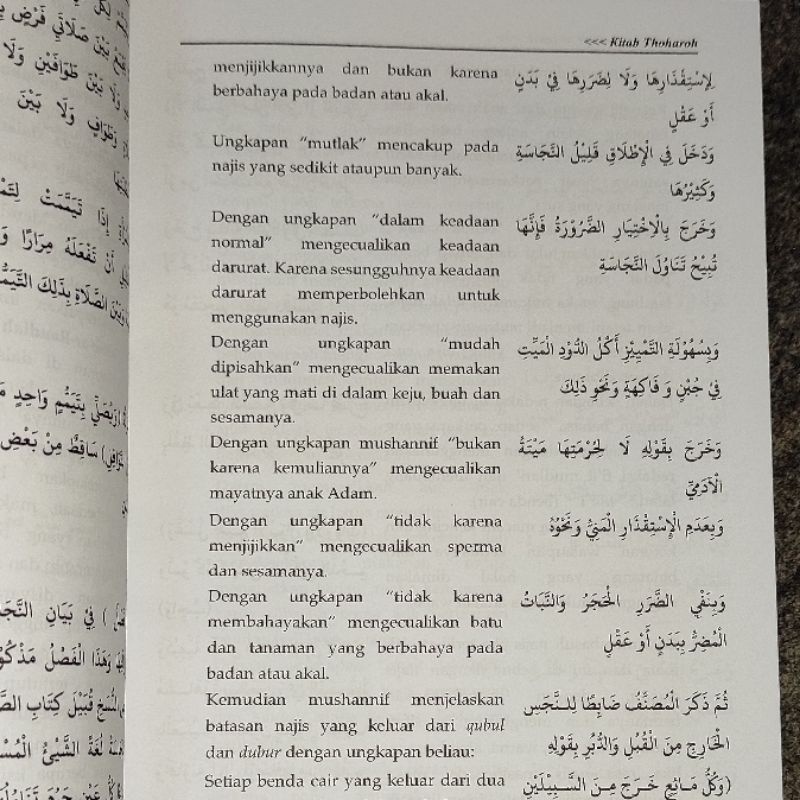 بَيْنَ صَلَاتَيْ فَرْضٍ
وَلَا بَيْنَ طَوَافَيْنِ وَلَا
وَطَوَافٍ وَلَا بَيْنَ
إِذَا تَيَمَّمَتْ
أَنْ تَفْعَلَهُ مِرَارًا
وَبَيْنَ الصَّلَاةِ بِذَلِكَ
بِتَيَمُّمٍ وَاحِدٍ
سَاقِطٌ مِنْ بَعْضِ
فِيْ بَيَانِ
وَهَذَا الْفَصْلُ
قُبَيْلَ كِتَابِ
لُغَةً الشَّيْئُ
كُلُّ عَيْنٍ حَرُمَ
<<< Kitab Thoharoh
menjijikkannya dan bukan karena
berbahaya pada badan atau akal.
Ungkapan "mutlak" mencakup pada
najis yang sedikit ataupun banyak.
Dengan ungkapan "dalam keadaan
normal" mengecualikan keadaan
darurat. Karena sesungguhnya keadaan
darurat memperbolehkan untuk
menggunakan najis.
Dengan ungkapan "mudah
dipisahkan" mengecualikan memakan
ulat yang mati di dalam keju, buah dan
sesamanya.
Dengan ungkapan mushannif "bukan
karena kemuliannya" mengecualikan
mayatnya anak Adam.
Dengan ungkapan "tidak karena
menjijikkan" mengecualikan sperma
dan sesamanya.
Dengan ungkapan "tidak karena
membahayakan" mengecualikan batu
dan tanaman yang berbahaya pada
badan atau akal.
Kemudian mushannif menjelaskan
batasan najis yang keluar dari qubul
dan dubur dengan ungkapan beliau:
Setiap benda cair yang keluar dari dua
لِاسْتِقْذَارِهَا وَلَا لِضَرَرِهَا فِيْ بَدَنٍ
أَوْ عَقْلٍ
وَدَخَلَ فِي الْإِطْلَاقِ قَلِيْلُ النَّجَاسَةِ
وَكَثِيْرُهَا
وَخَرَجَ بِالْاِخْتِيَارِ الضَّرُوْرَةُ فَإِنَّهَا
تُبِيْحُ تَنَاوُلَ النَّجَاسَةِ
وَبِسُهُوْلَةِ التَّمْيِيْزِ أَكْلُ الدُّوْدِ الْمَيِّتِ
فِيْ جُبْنٍ وَ فَاكِهَةٍ وَنَحْوِ ذَلِكَ
وَخَرَجَ بِقَوْلِهِ لَا لِحُرْمَتِهَا مَيْتَةُ
الْآدَمِيِّ
وَبِعَدَمِ الْاِسْتِقْذَارِ الْمَنِيُّ وَنَحْوُهُ
وَبِنَفْيِ الضَّرَرِ الْحَجَرُ وَالنَّبَاتُ
الْمُضِرُّ بِبَدَنٍ أَوْ عَقْلٍ
ثُمَّ ذَكَرَ الْمُصَنِّفُ ضَابِطًا لِلنَّجَسِ
الْخَارِجِ مِنَ الْقُبُلِ وَالدُّبُرِ بِقَوْلِهِ
(وَكُلُّ مَائِعٍ خَرَجَ مِنَ السَّبِيْلَيْنِ